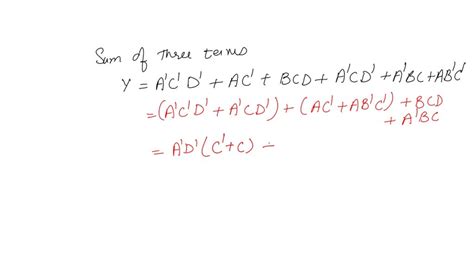 Sum of three terms
Y = A'C'D' + AC' + BCD + A'CD' + A'BC + AB'C'
= (A'C'D' + A'CD') + (AC' + AB'C') + BCD
+ A'BC
= A'D' (C'+C) -